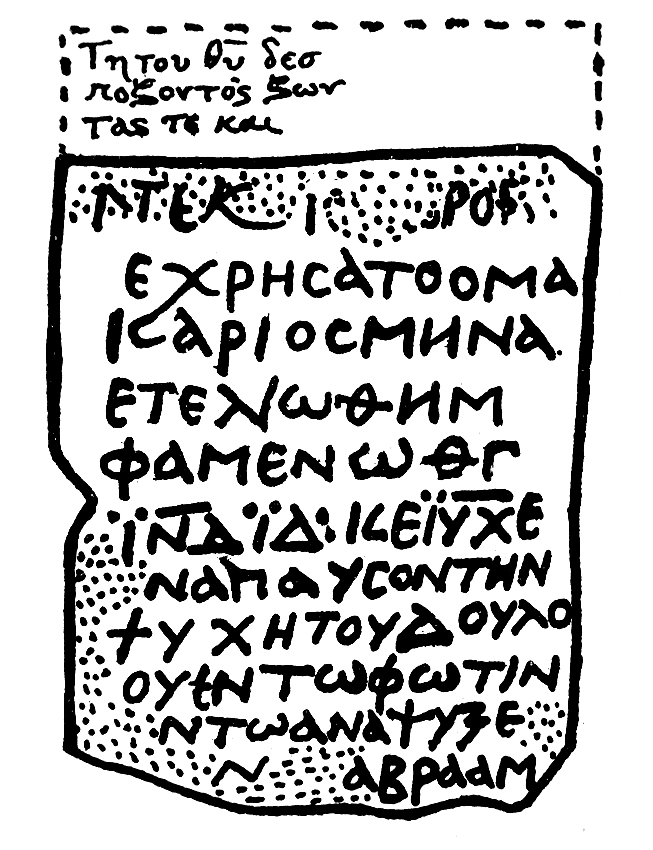 Τη του θ̅υ̅ δεσ
ποζοντος ζων
τας τε και
ΝΤΕΚ Ι ΡΟΣ
ΕΧΡΗCΑΤΟΟΜΑ
ΚΑΡΙΟCΜΗΝΑ
ΕΤΕΛΙΩΘΗΜ
ΦΑΜΕΝΩΘΓ
ΪΝΔΪΔ: ΚΕΙΫΧ̅Ε
ΝΑΠΑΥCΟΝΤΗΝ
ΨΥΧΗΤΟΥΔΟΥΛΟ
ΟΥΕΝΤΩΦΩΤΙΝ
ΝΤΩΑΝΑΨΥΞΕ
Ν ΑΒΡΑΑΜ